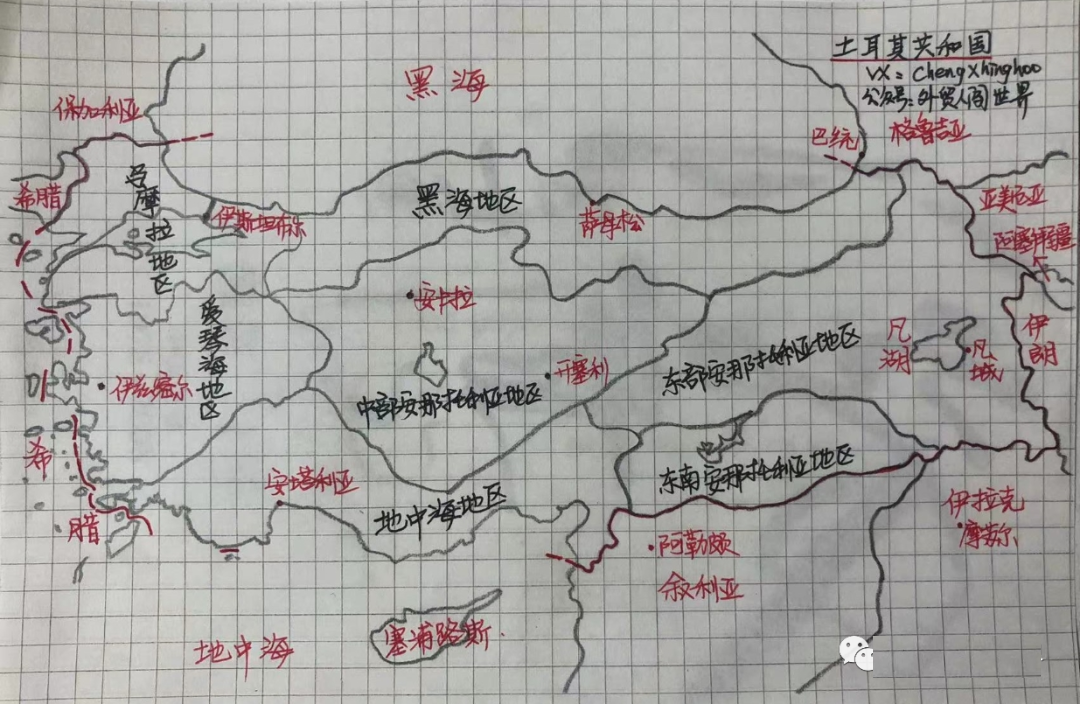 土耳其共和国
VX: chengxhinghoo
公众号: 外贸人阅世界
黑海
保加利亚
希腊
马摩拉地区
伊斯坦布尔
黑海地区
萨母松
巴统
格鲁吉亚
亚美尼亚
阿塞拜疆
伊朗
安卡拉
爱琴海地区
伊兹密尔
中部安那托利亚地区
开塞利
东部安那托利亚地区
凡湖
凡城
希腊
安塔利亚
地中海地区
东南安那托利亚地区
伊拉克
摩苏尔
阿勒颇
叙利亚
塞浦路斯
地中海